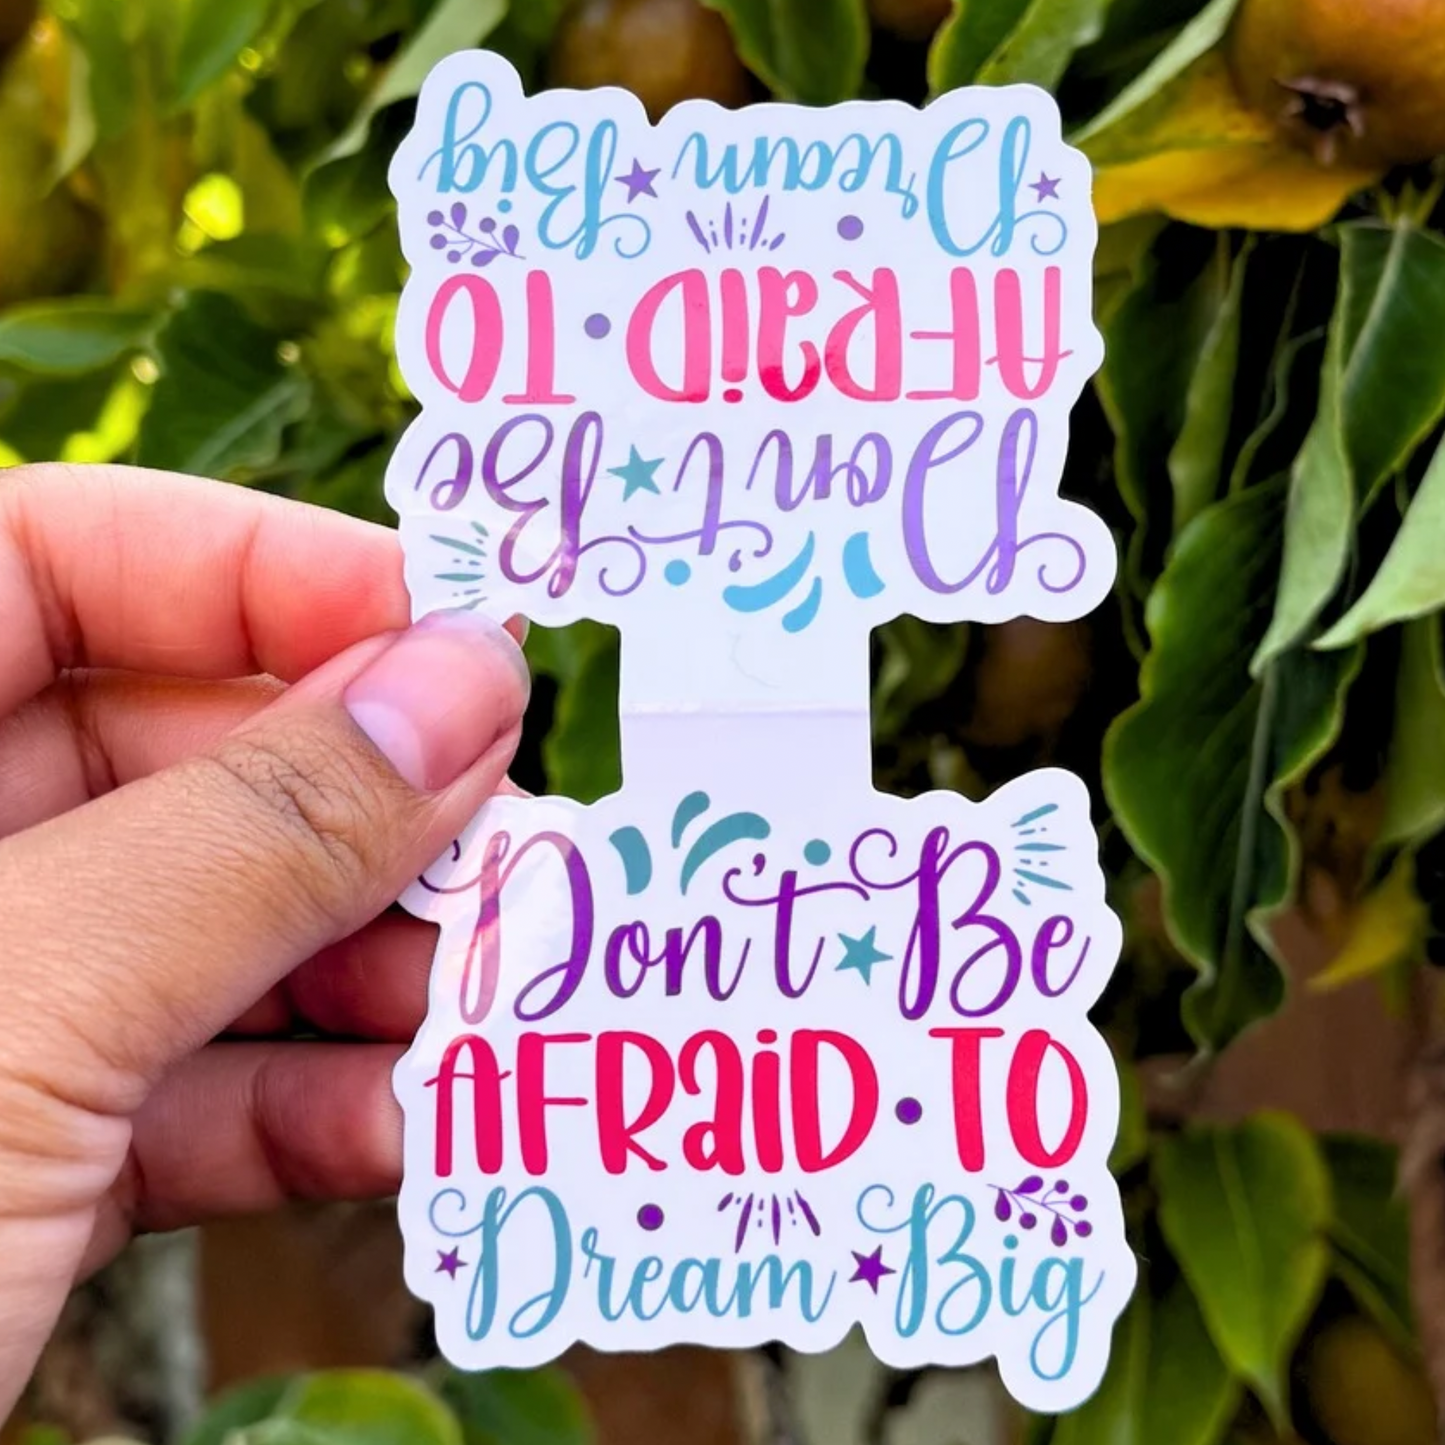 Don't Be
AFRAID TO
Dream Big
Don't Be
AFRAID TO
Dream Big